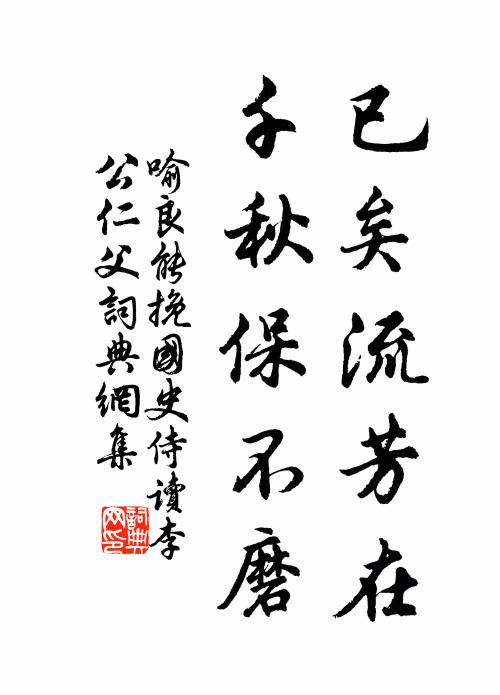 已矣流芳在
千秋保不磨
喻良能挽國史侍讀李
公仁父詞典網集
詞典
网印